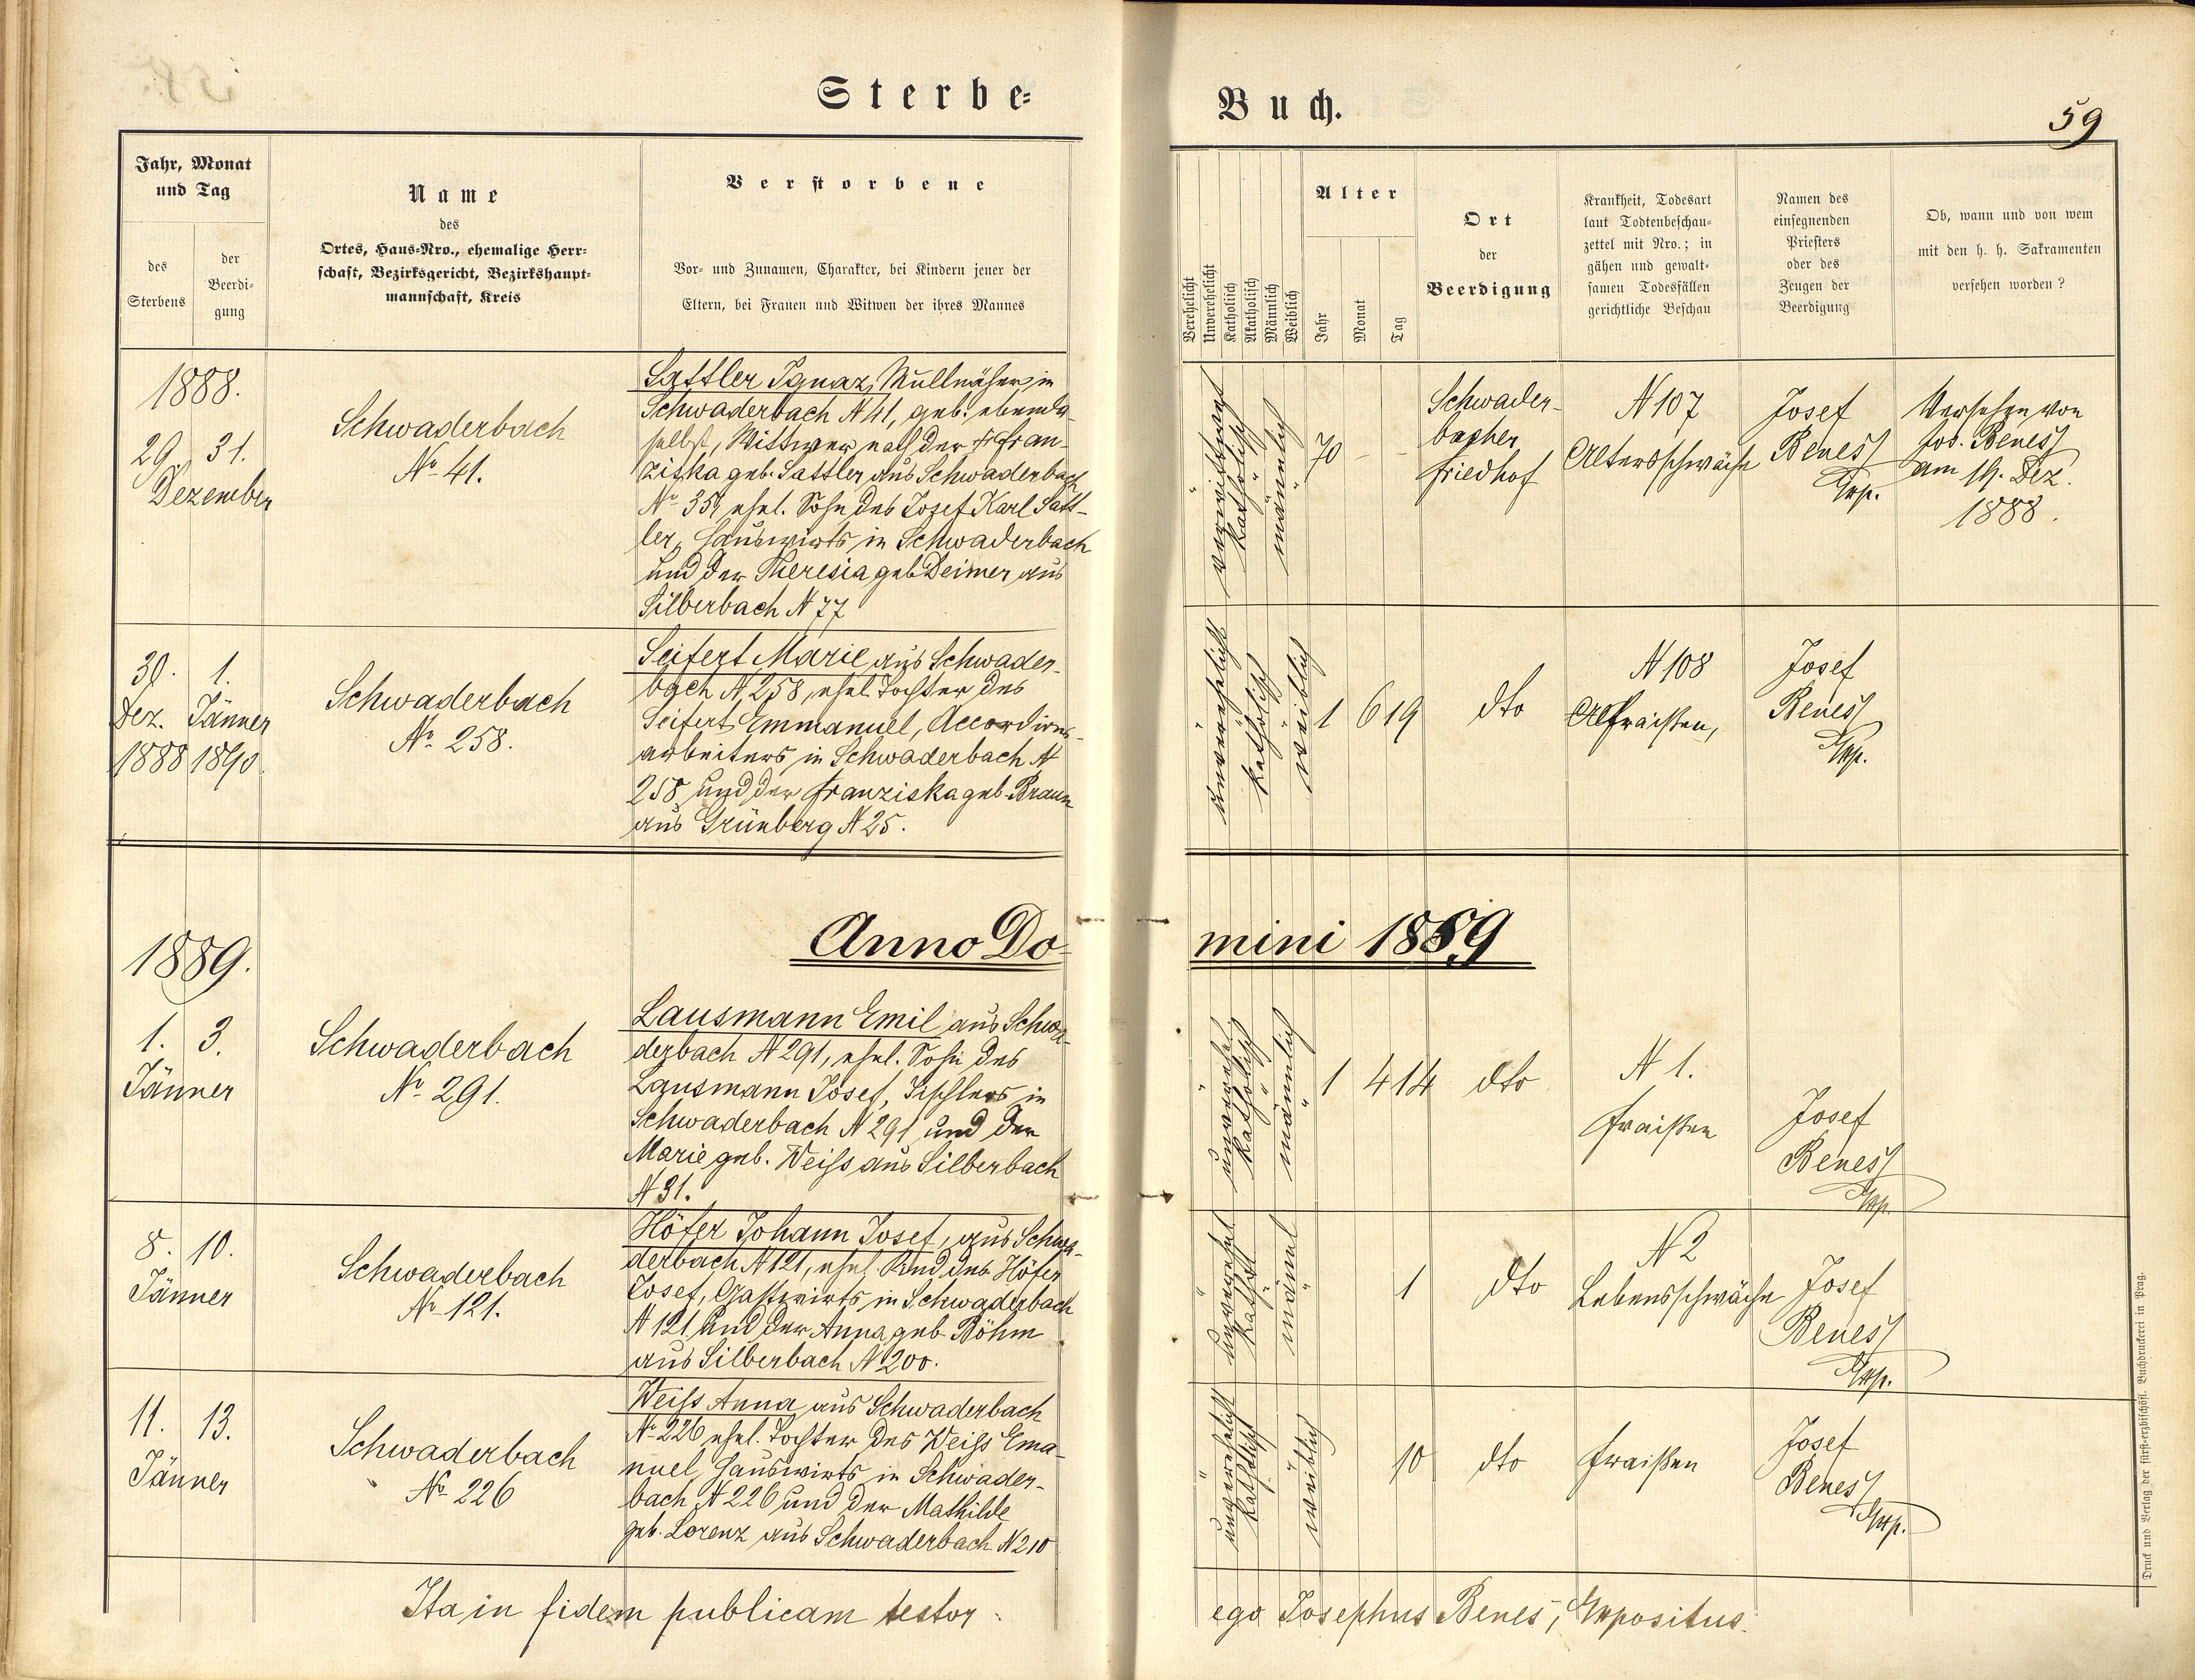 Sterbe-
Buch.
59
Jahr, Monat
und Tag
des
Sterbens
der
Beerdi-
gung
Name
des
Ortes, Haus-Nro., ehemalige Herr-
schaft, Bezirksgericht, Bezirkshaupt-
mannschaft, Kreis
Verstorbene
Vor- und Zunamen, Charakter, bei Kindern jener der
Eltern, bei Frauen und Witwen der ihres Mannes
Verehelicht
Unverehelicht
Katholisch
Akatholisch
Männlich
Weiblich
Alter
Jahr
Monat
Tag
Ort
der
Beerdigung
Krankheit, Todesart
laut Todtenbeschau-
zettel mit Nro.; in
gähen und gewalt-
samen Todesfällen
gerichtliche Beschau
Namen des
einsegnenden
Priesters
oder des
Zeugen der
Beerdigung
Ob, wann und von wem
mit den h. h. Sakramenten
versehen worden?
1888.
29. 31.
Dezember
Schwaderbach
No 41.
Sattler Ignaz, Müllnäher in
Schwaderbach N 41, geb. ebenda-
selbst, Wittwer nach der Fran-
ziska geb. Sattler aus Schwaderbach
No 35, ehel. Sohn des Josef Karl Satt-
ler, Hauswirts in Schwaderbach
und der Theresia geb Deimer aus
Silberbach N 77
verwittwet
katholisch
männlich
70 – –
Schwader-
bacher
Friedhof
N 107
Altersschwäche
Josef
Beneš
Exp.
Versehen von
Jos. Beneš
am 19. Dez.
1888.
30. 1.
Dez. Jänner
1888 1890.
Schwaderbach
No 258.
Seifert Marie aus Schwader-
bach N 258, ehel. Tochter des
Seifert Emmanuel, Accordions-
arbeiters in Schwaderbach N
258 und der Franziska geb. Braun
aus Grünberg N 25.
unverehelicht
katholisch
weiblich
1 6 19
dto
N 108
Fraißen,
Josef
Beneš
Exp.
Anno Do-
mini 1889
1889.
1. 3.
Jänner
Schwaderbach
No 291.
Lausmann Emil aus Schwa-
derbach N 291, ehel. Sohn des
Lausmann Josef, Tischlers in
Schwaderbach N 291 und der
Marie geb. Weiss aus Silberbach
N 31.
unverehel
katholisch
männlich
1 4 14
dto
N 1.
Fraißen
Josef
Beneš
Exp.
8. 10.
Jänner
Schwaderbach
No 121.
Höfer Johann Josef, aus Schwa-
derbach N 121, ehel. Kind des Höfer
Josef, Gastwirts in Schwaderbach
N 121 und der Anna geb Böhm
aus Silberbach N 200.
unverehel
kathol
männl
1
dto
N 2
Lebensschwäche
Josef
Beneš
Exp.
11. 13.
Jänner
Schwaderbach
No 226
Weiss Anna aus Schwaderbach
No 226 ehel. Tochter des Weiss Ema-
nuel, Hauswirts in Schwader-
bach N 226 und der Mathilde
geb. Lorenz aus Schwaderbach N 210
unverehelicht
katholisch
weiblich
10
dto
Fraißen
Josef
Beneš
Exp.
Ita in fidem publicam testor
ego Josephus Beneš, Expositus.
Druck und Verlag der fürst-erzbischöfl. Buchdruckerei in Prag.